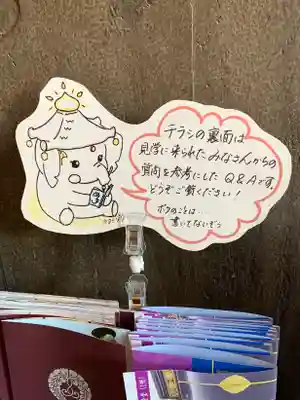 チラシの裏面は
見学に来られたみなさんからの
質問を参考にした Q&Aです。
どうぞご覧ください!
ボクのことは…
書いてないぞう